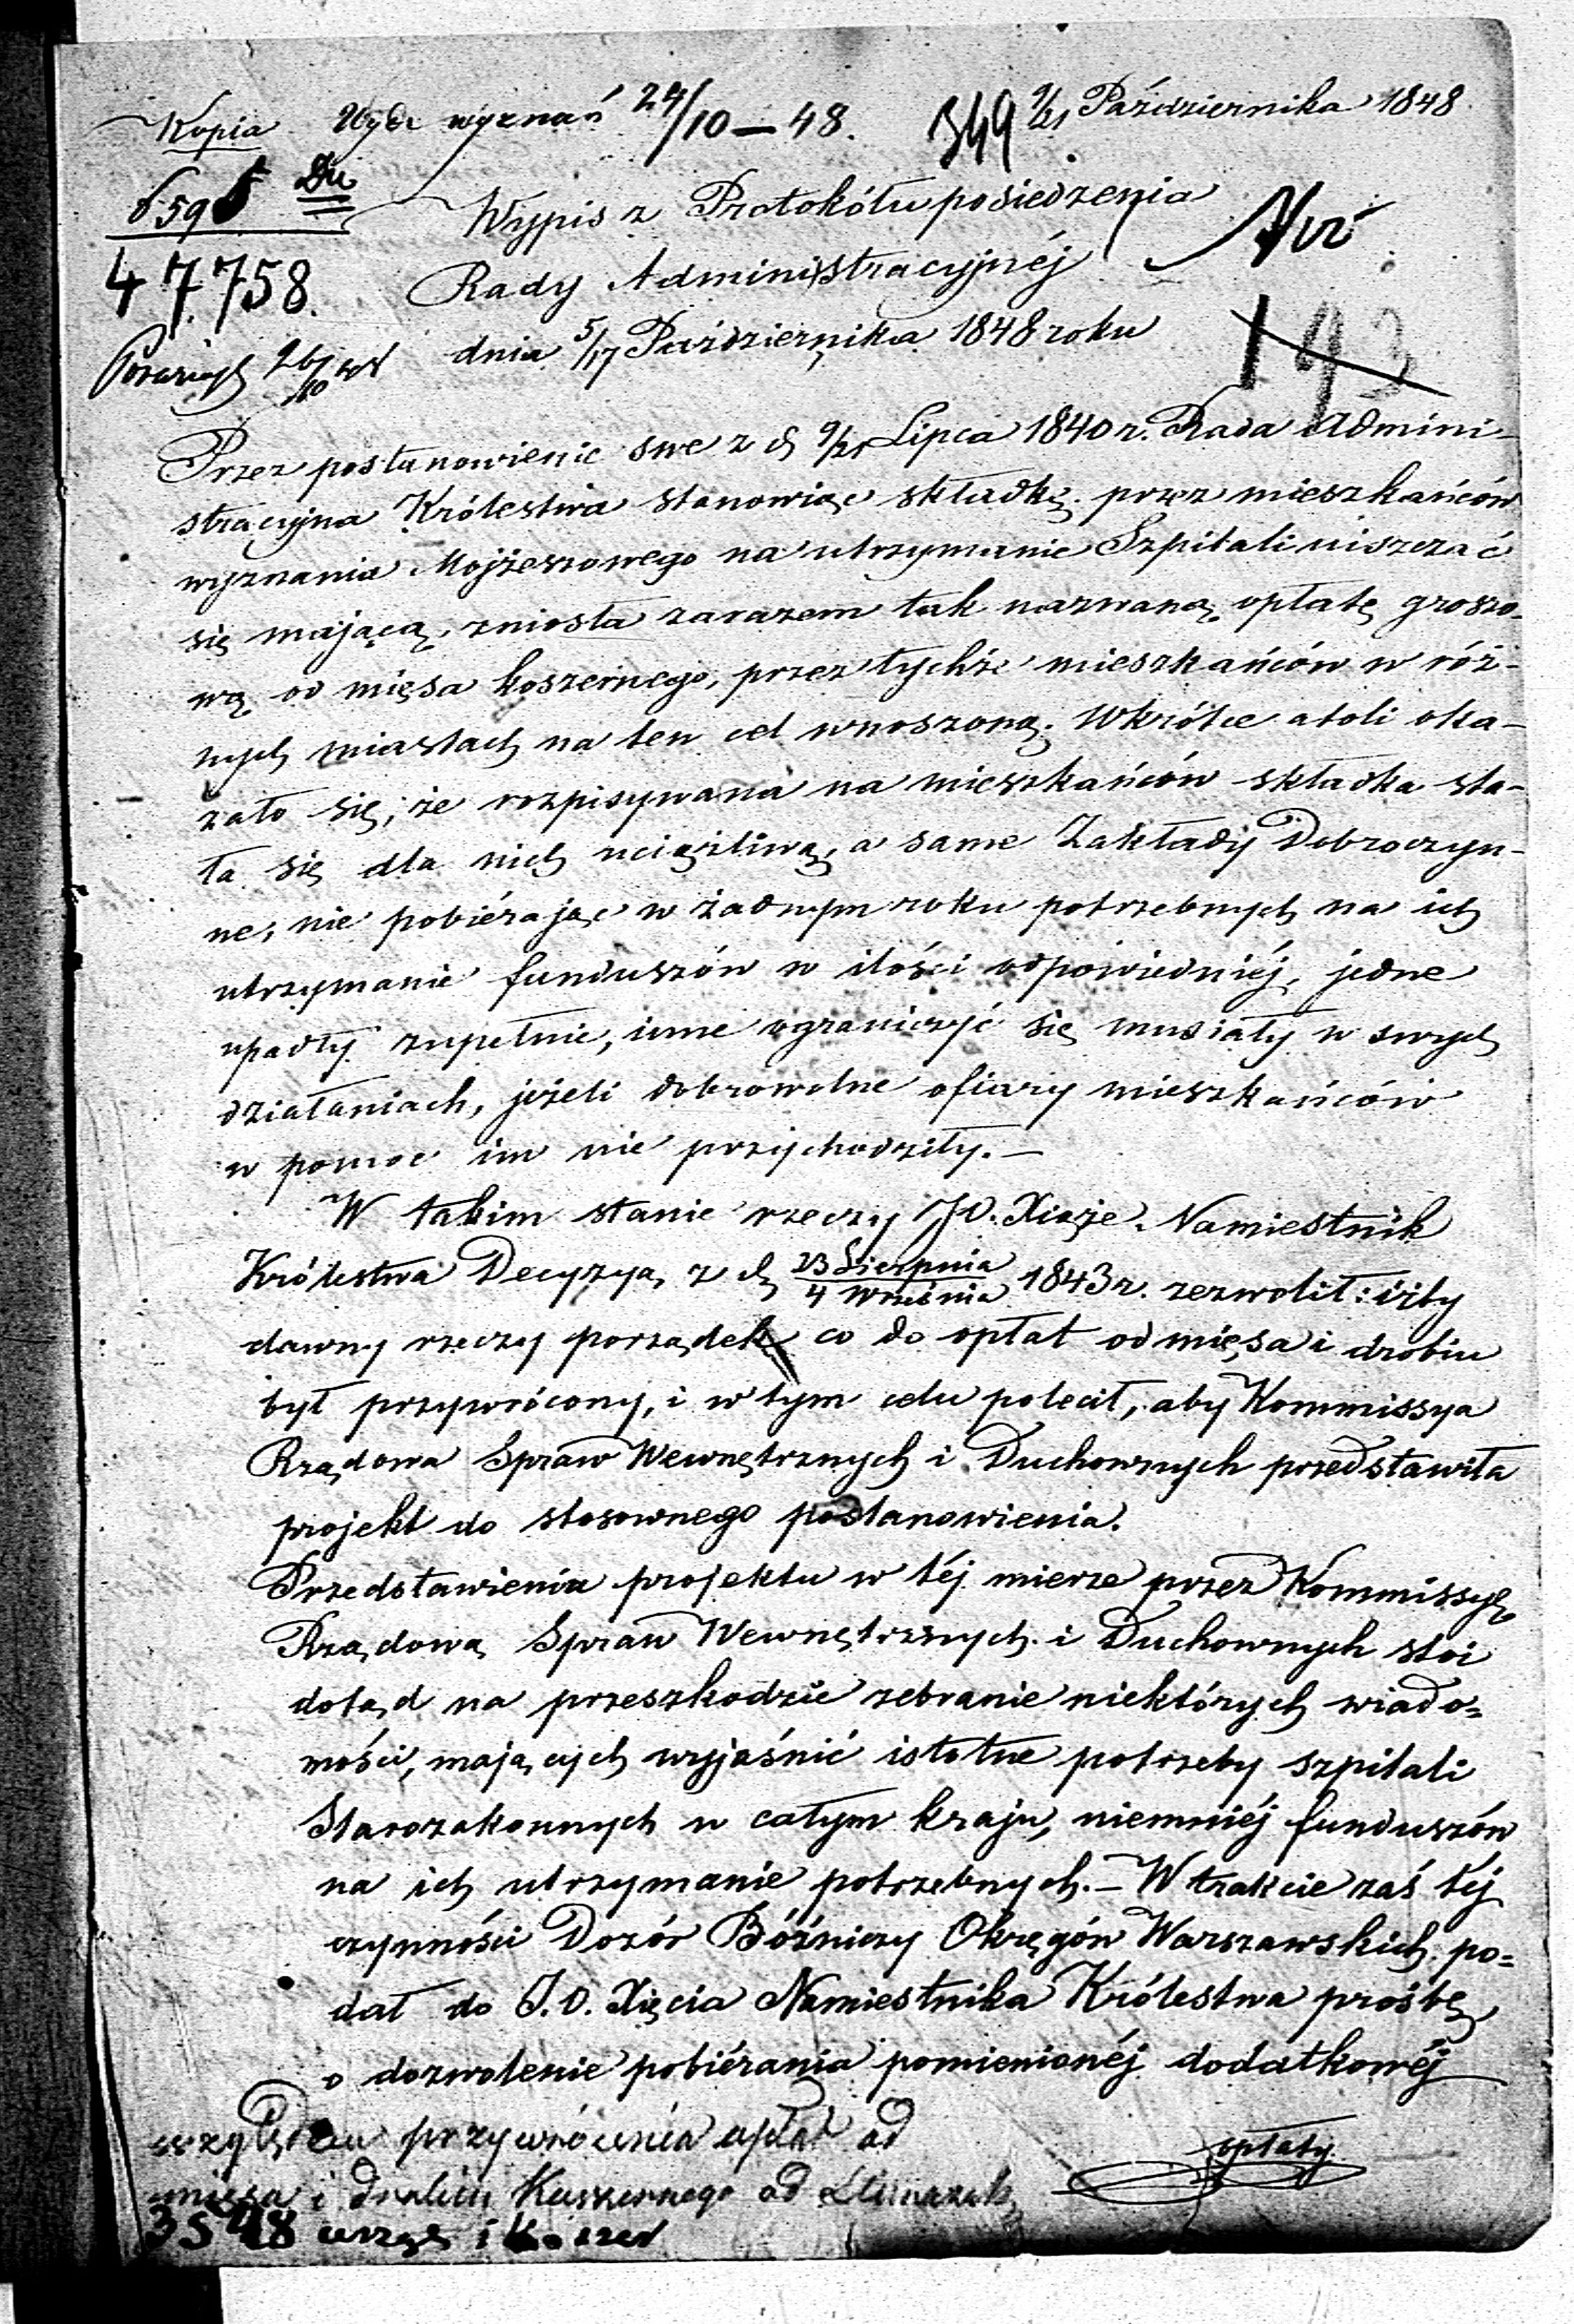 Kopia Wydz wyznań 24/10 – 48. 349 9/21 Października 1848
6595 Du
Wypis z Protokółu posiedzenia
47.758. Rady Administracyjnéj
dnia 5/17 Października 1848 roku
193
Przez postanowienie swe z d 9/21 Lipca 1840 r. Rada Admini-
stracyjna Królestwa stanowiąc składkę przez mieszkańców
wyznania Mojżeszowego na utrzymanie Szpitali uiszczać
się mającą, zniosła zarazem tak nazwaną opłatę groszo-
wą od mięsa koszernego, przez tychże mieszkańców w róż-
nych miastach na ten cel wnoszoną. Wkrótce atoli oka-
zało się, że rozpisywana na mieszkańców składka sta-
ła się dla nich uciążliwą, a same Zakłady Dobroczyn-
ne, nie pobiérając w żadnym roku potrzebnych na ich
utrzymanie funduszów w ilości odpowiedniéj, jedne
upadły zupełnie, inne ograniczyć się musiały w swych
działaniach, jeżeli dobrowolne ofiary mieszkańców
w pomoc im nie przychodziły. –
W takim stanie rzeczy JO. Xiąże Namiestnik
Królestwa Decyzyą z d 23 Sierpnia / 4 Września 1843 r. zezwolił: iżby
dawny rzeczy porządek co do opłat od mięsa i drobiu
był przywrócony, i w tym celu polecił, aby Kommissya
Rządowa Spraw Wewnętrznych i Duchownych przedstawiła
projekt do stosownego postanowienia.
Przedstawieniu projektu w téj mierze przez Kommissyę
Rządową Spraw Wewnętrznych i Duchownych stoi
dotąd na przeszkodzie zebranie niektórych wiado-
mości, mających wyjaśnić istotne potrzeby szpitali
Starozakonnych w całym kraju, niemniéj funduszów
na ich utrzymanie potrzebnych. – W trakcie zaś téj
czynności Dozór Bóźniczy Okręgów Warszawskich po-
dał do J.O. Xięcia Namiestnika Królestwa prośbę
o dozwolenie pobiérania pomienionéj dodatkowéj
opłaty
względem przywrócenia opłat od
mięsa i drobiu Koszernego od
3548